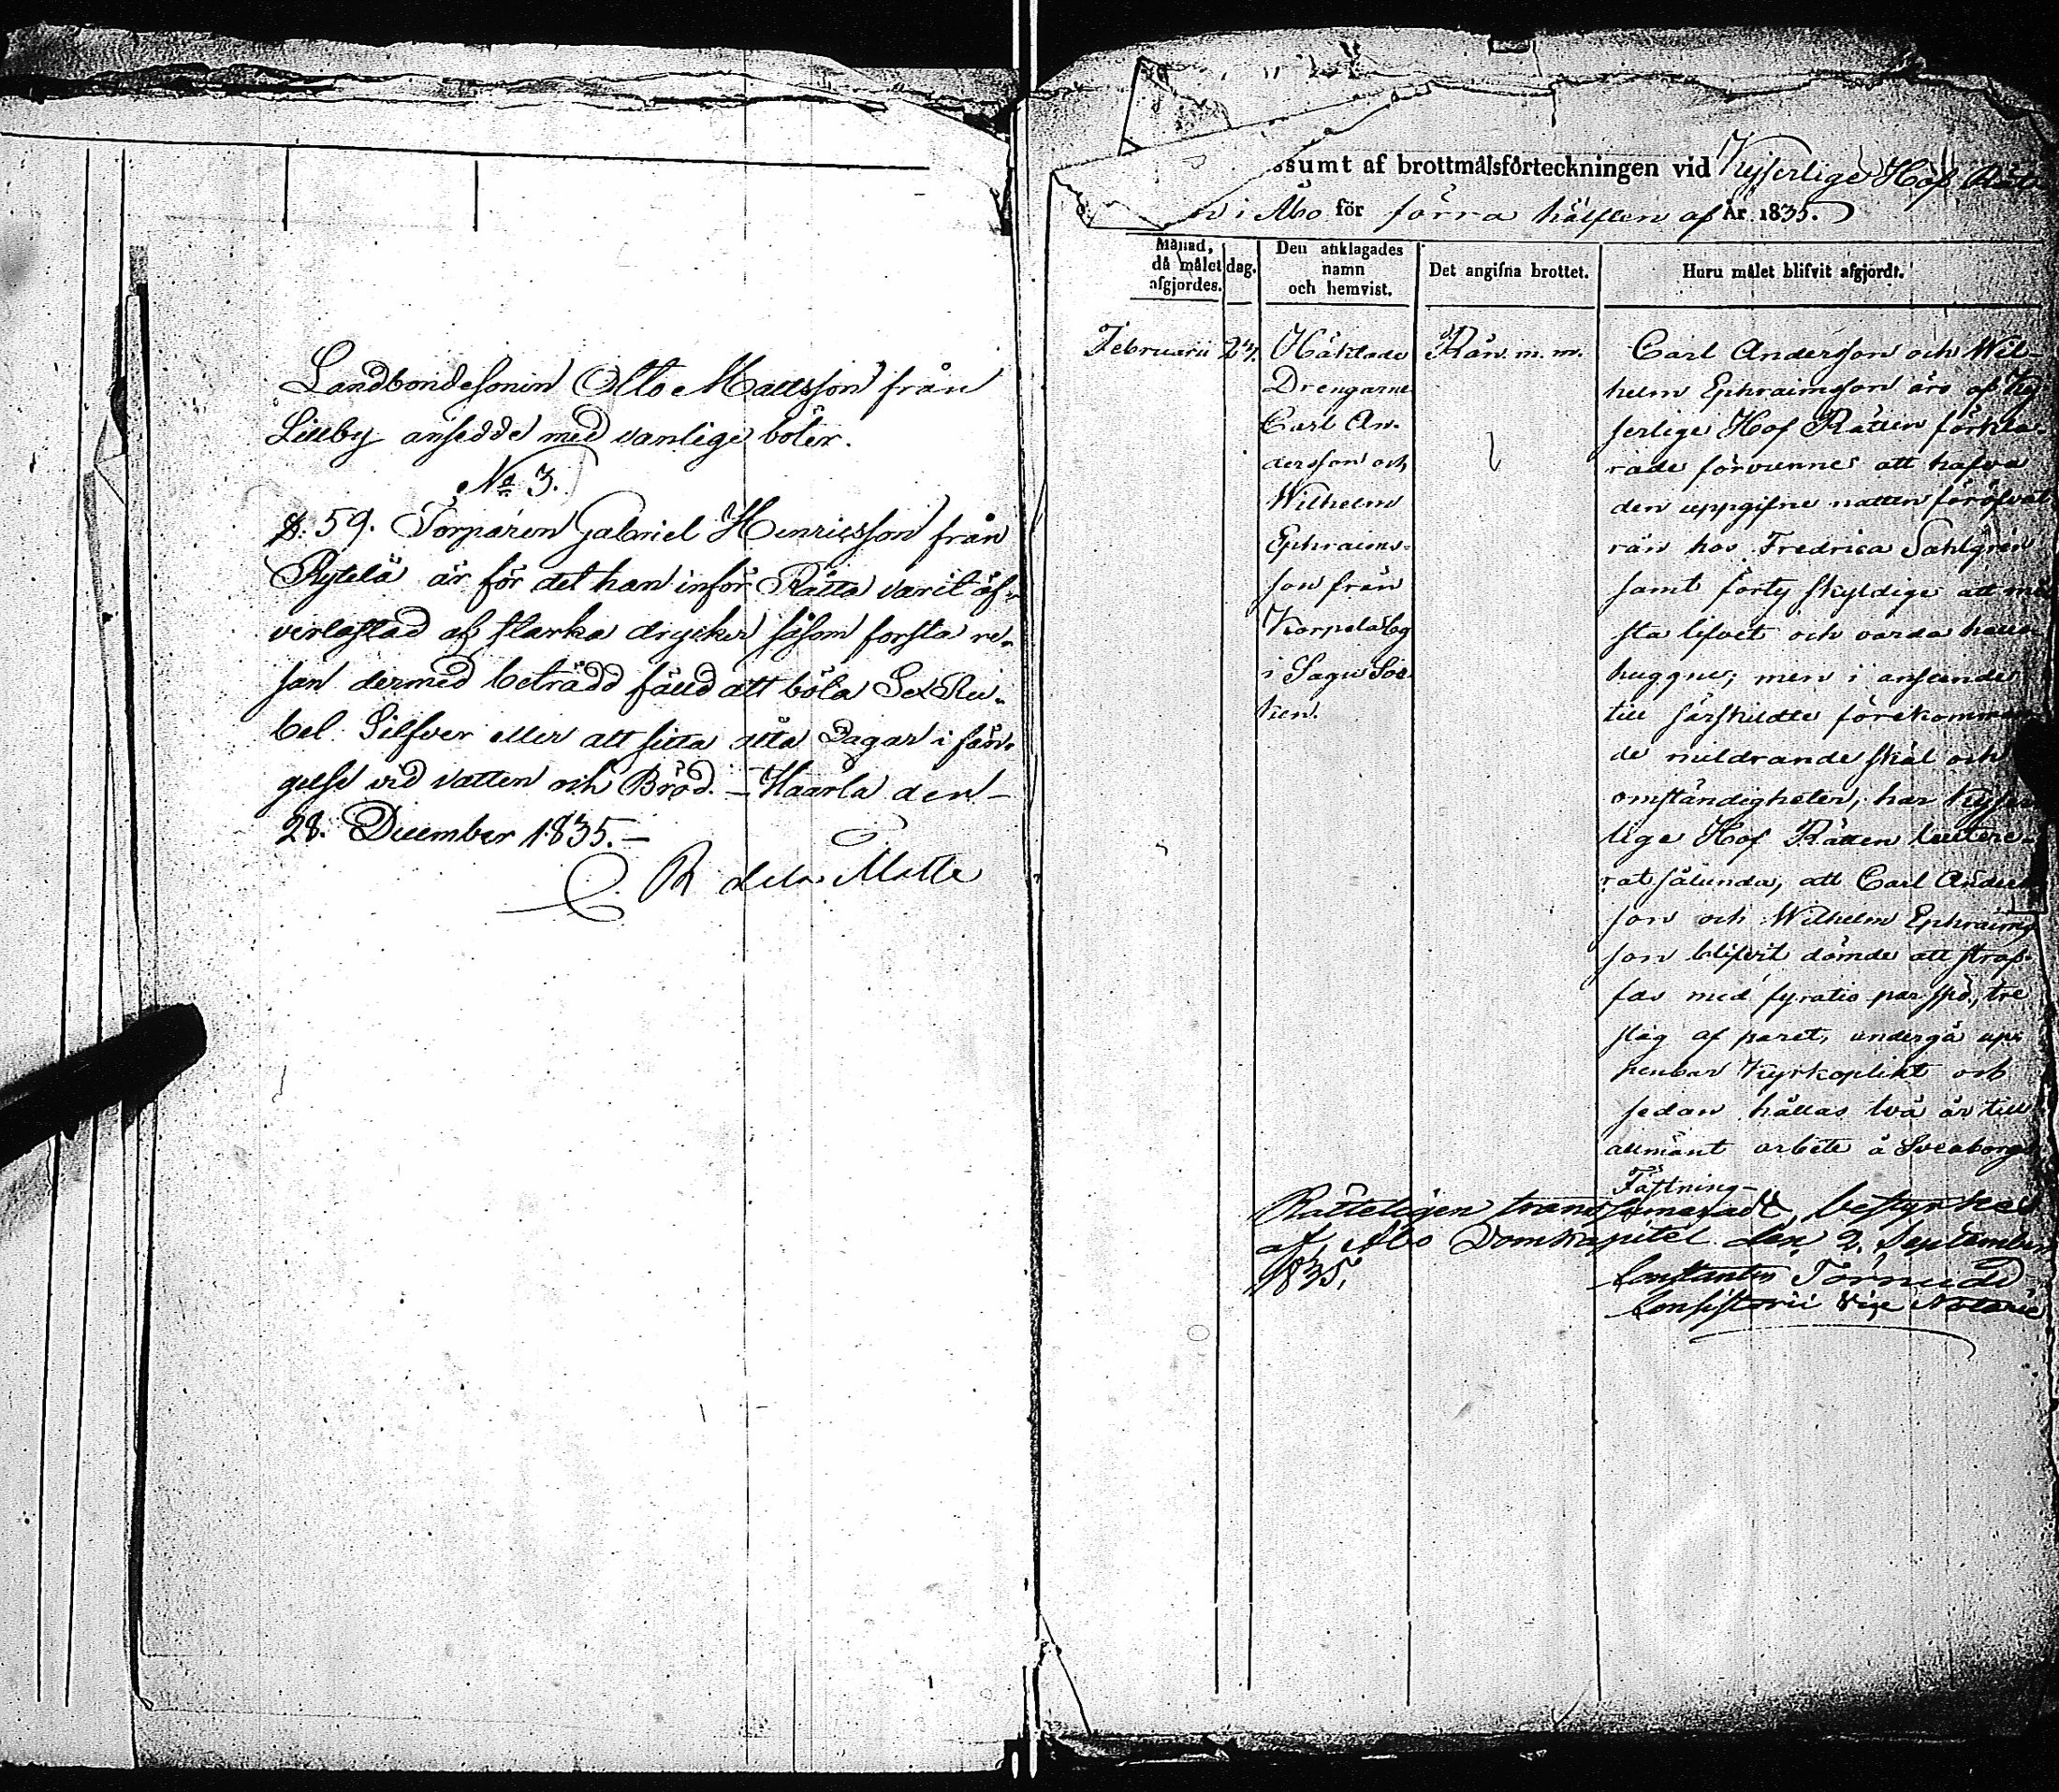 Landbondesonen Otto Mattsson från
Lilleby ansedde med vanlige böter.
No 3.
§. 59. Torparen Gabriel Henricsson från
Rytelä är för det han inför Rätta varit öf-
verlastad af starka drycker såsom första re-
san dermed beträdd fälld att böta Sex Ru-
bel Silfver eller att sitta åtta Dagar i fän-
gelse vid vatten och Bröd. – Haarla den
28. December 1835. –
R de la Motte
ssumt af brottmålsförteckningen vid Kejserlige Hof Rätte
n i Åbo för förra hälften af År 1835.
Månad, då målet afgjordes.
dag.
Den anklagades namn och hemvist.
Det angifna brottet.
Huru målet blifvit afgjordt.
Februarii
24.
Häktade
Drengarne
Carl An-
dersson och
Wilhelm
Ephraims-
son från
Korpela by
i Sagu Soc-
ken.
Rån m. m.
Carl Andersson och Wil-
helm Ephraimsson äro af Kej
serlige Hof Rätten förkla-
rade förvunne att hafva
den uppgifne natten föröfvat
rån hos Fredrica Sahlgren
samt förty skyldige att mi
sta lifvet och varda hals
huggne; men i anseende
till särskildte förekomman
de mildrande skäl och
omständigheter, har Kejser
lige Hof Rätten leutere-
rat sålunda, att Carl Anders
son och Wilhelm Ephraims
son blifvit dömde att straf-
fas med fyratio par spö, tre
slag af paret, undergå up-
penbar Kyrkoplikt och
sedan hållas två år till
allmänt arbete å Sveaborgs
Fästning –
Rätteligen transsumeradt, bestyrkes
af Åbo Domkapitel den 2. September
1835.
Constantin Törnudd
Consistorii Vice Notarie